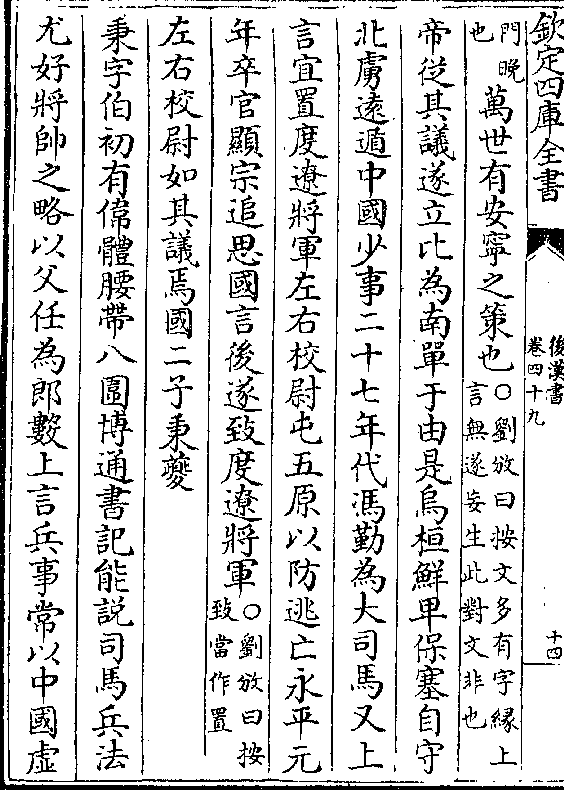 欽定四庫全書
後漢書
卷四十九
十四
門晚
也
萬世有安寧之策也
○劉攽曰按文多有字緣上
言無遂妄生此對文非也
帝從其議遂立比為南單于由是烏桓鮮卑保塞自守
北虜遠遁中國少事二十七年代馮勤為大司馬又上
言宜置度遼將軍左右校尉屯五原以防逃亡永平元
年卒官顯宗追思國言後遂致度遼將軍
○劉攽曰按
致當作置
左右校尉如其議焉國二子秉夔
秉字伯初有偉體腰帶八圍博通書記能説司馬兵法
尤好將帥之略以父任為郎數上言兵事常以中國虛